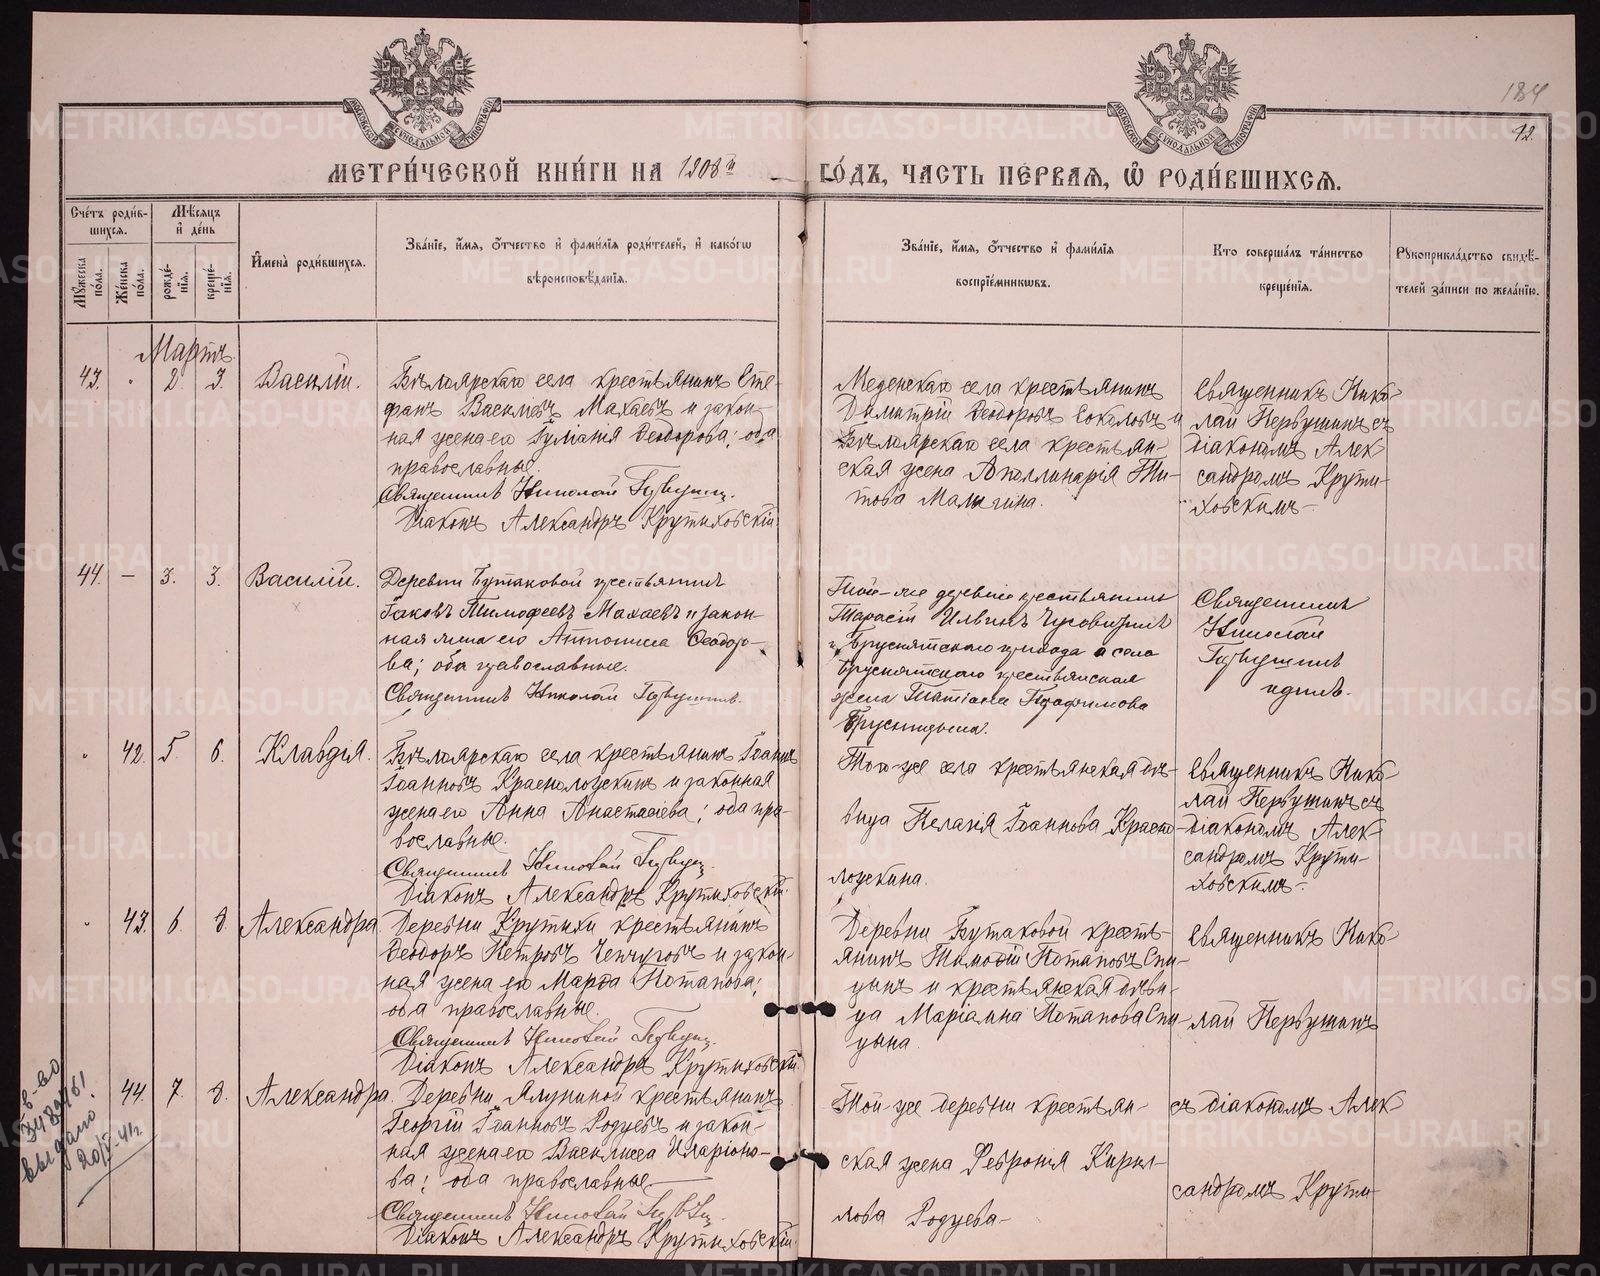 184
12.
МЕТРИ́ЧЕСКОЙ КНИ́ГИ НА 1908й ГО́ДЪ, ЧАСТЬ ПЕ́РВАЯ, Ѡ҆ РОДИ́ВШИХСЯ.
Сче́тъ роди́в-
шихся.
Мꙋ́жеска по́ла.
Же́нска по́ла.
Мѣ́сяцъ
и҆ де́нь
рожде́-
нїя.
креще́-
нїя.
И҆мена̀ роди́вшихся.
Зва́нїе, и҆́мя, ѻ҆́тчество и҆ фами́лїя роди́телей, и҆ како́гѡ
вѣроисповѣ́данїя.
Зва́нїе, и҆́мя, ѻ҆́тчество и҆ фами́лїя
воспрїе́мниковъ.
Кто соверша́лъ та́инство
креще́нїя.
Рꙋкоприкла́дство свидѣ́-
телей за́писи по жела́нїю.
Мартъ
43. " 2. 3. Василій.
Бѣлоярскаго села крестьянинъ Сте-
фанъ Васильевъ Махаевъ и закон-
ная жена его Іуліанія Ѳеодорова; оба
православные.
Священникъ Николай Первушин.
Діаконъ Александръ Крутиховскій.
Меденскаго села крестьянинъ
Димитрій Ѳеодоровъ Соколовъ и
Бѣлоярскаго села крестьян-
ская жена Аполлинарія Ти-
това Малыгина.
Священникъ Нико-
лай Первушинъ съ
діакономъ Алек-
сандромъ Крути-
ховскимъ
44. — 3. 3. Василій.
Деревни Бутаковой крестьянинъ
Іаковъ Тимофеевъ Махаевъ и закон-
ная жена его Антонина Ѳеодоро-
ва; оба православные.
Священникъ Николай Первушинъ.
Той-же деревни крестьянинъ
Тарасій Ильинъ
и Бруснятскаго прихода и села
Бруснятскаго крестьянская
жена Татіана
Брусницына.
Священникъ
Николай
Первушинъ
одинъ.
" 42. 5. 6. Клавдія.
Бѣлоярскаго села крестьянинъ Іоаннъ
Іоанновъ Краснолоскинъ и законная
жена его Анна Анастасіева; оба пра-
вославные.
Священникъ Николай Первуш.
Діаконъ Александръ Крутиховскій.
Того-же села крестьянская дѣ-
вица Пелагія Іоаннова Красно-
лоскина.
Священникъ Нико-
лай Первушинъ съ
діакономъ Алек-
сандромъ Крути-
ховскимъ
" 43. 6. 8. Александра.
Деревни Крутихи крестьянинъ
Ѳеодоръ Петровъ Чепчуговъ и закон-
ная жена его Марѳа Потапова;
оба православные.
Священникъ Николай Первуш.
Діаконъ Александръ Крутиховскій.
Деревни Бутаковой кресть-
янинъ Тимоѳій Потаповъ Спи-
цынъ и крестьянская дѣви-
ца Маріамна Потапова Спи-
цына.
Священникъ Нико-
лай Первушинъ
44. 7. 8. Александра.
Деревни Ялуниной крестьянинъ
Георгій Іоанновъ Родуевъ и закон-
ная жена его Василиса Иларіоно-
ва; оба православные.
Священникъ Николай
Діаконъ Александръ Крутиховскій.
Той-же деревни крестьян-
ская жена Февронія Кирил-
лова Родуева
съ діакономъ Алек-
сандромъ Крути-
выдано
METRIKI.GASO-URAL.RU